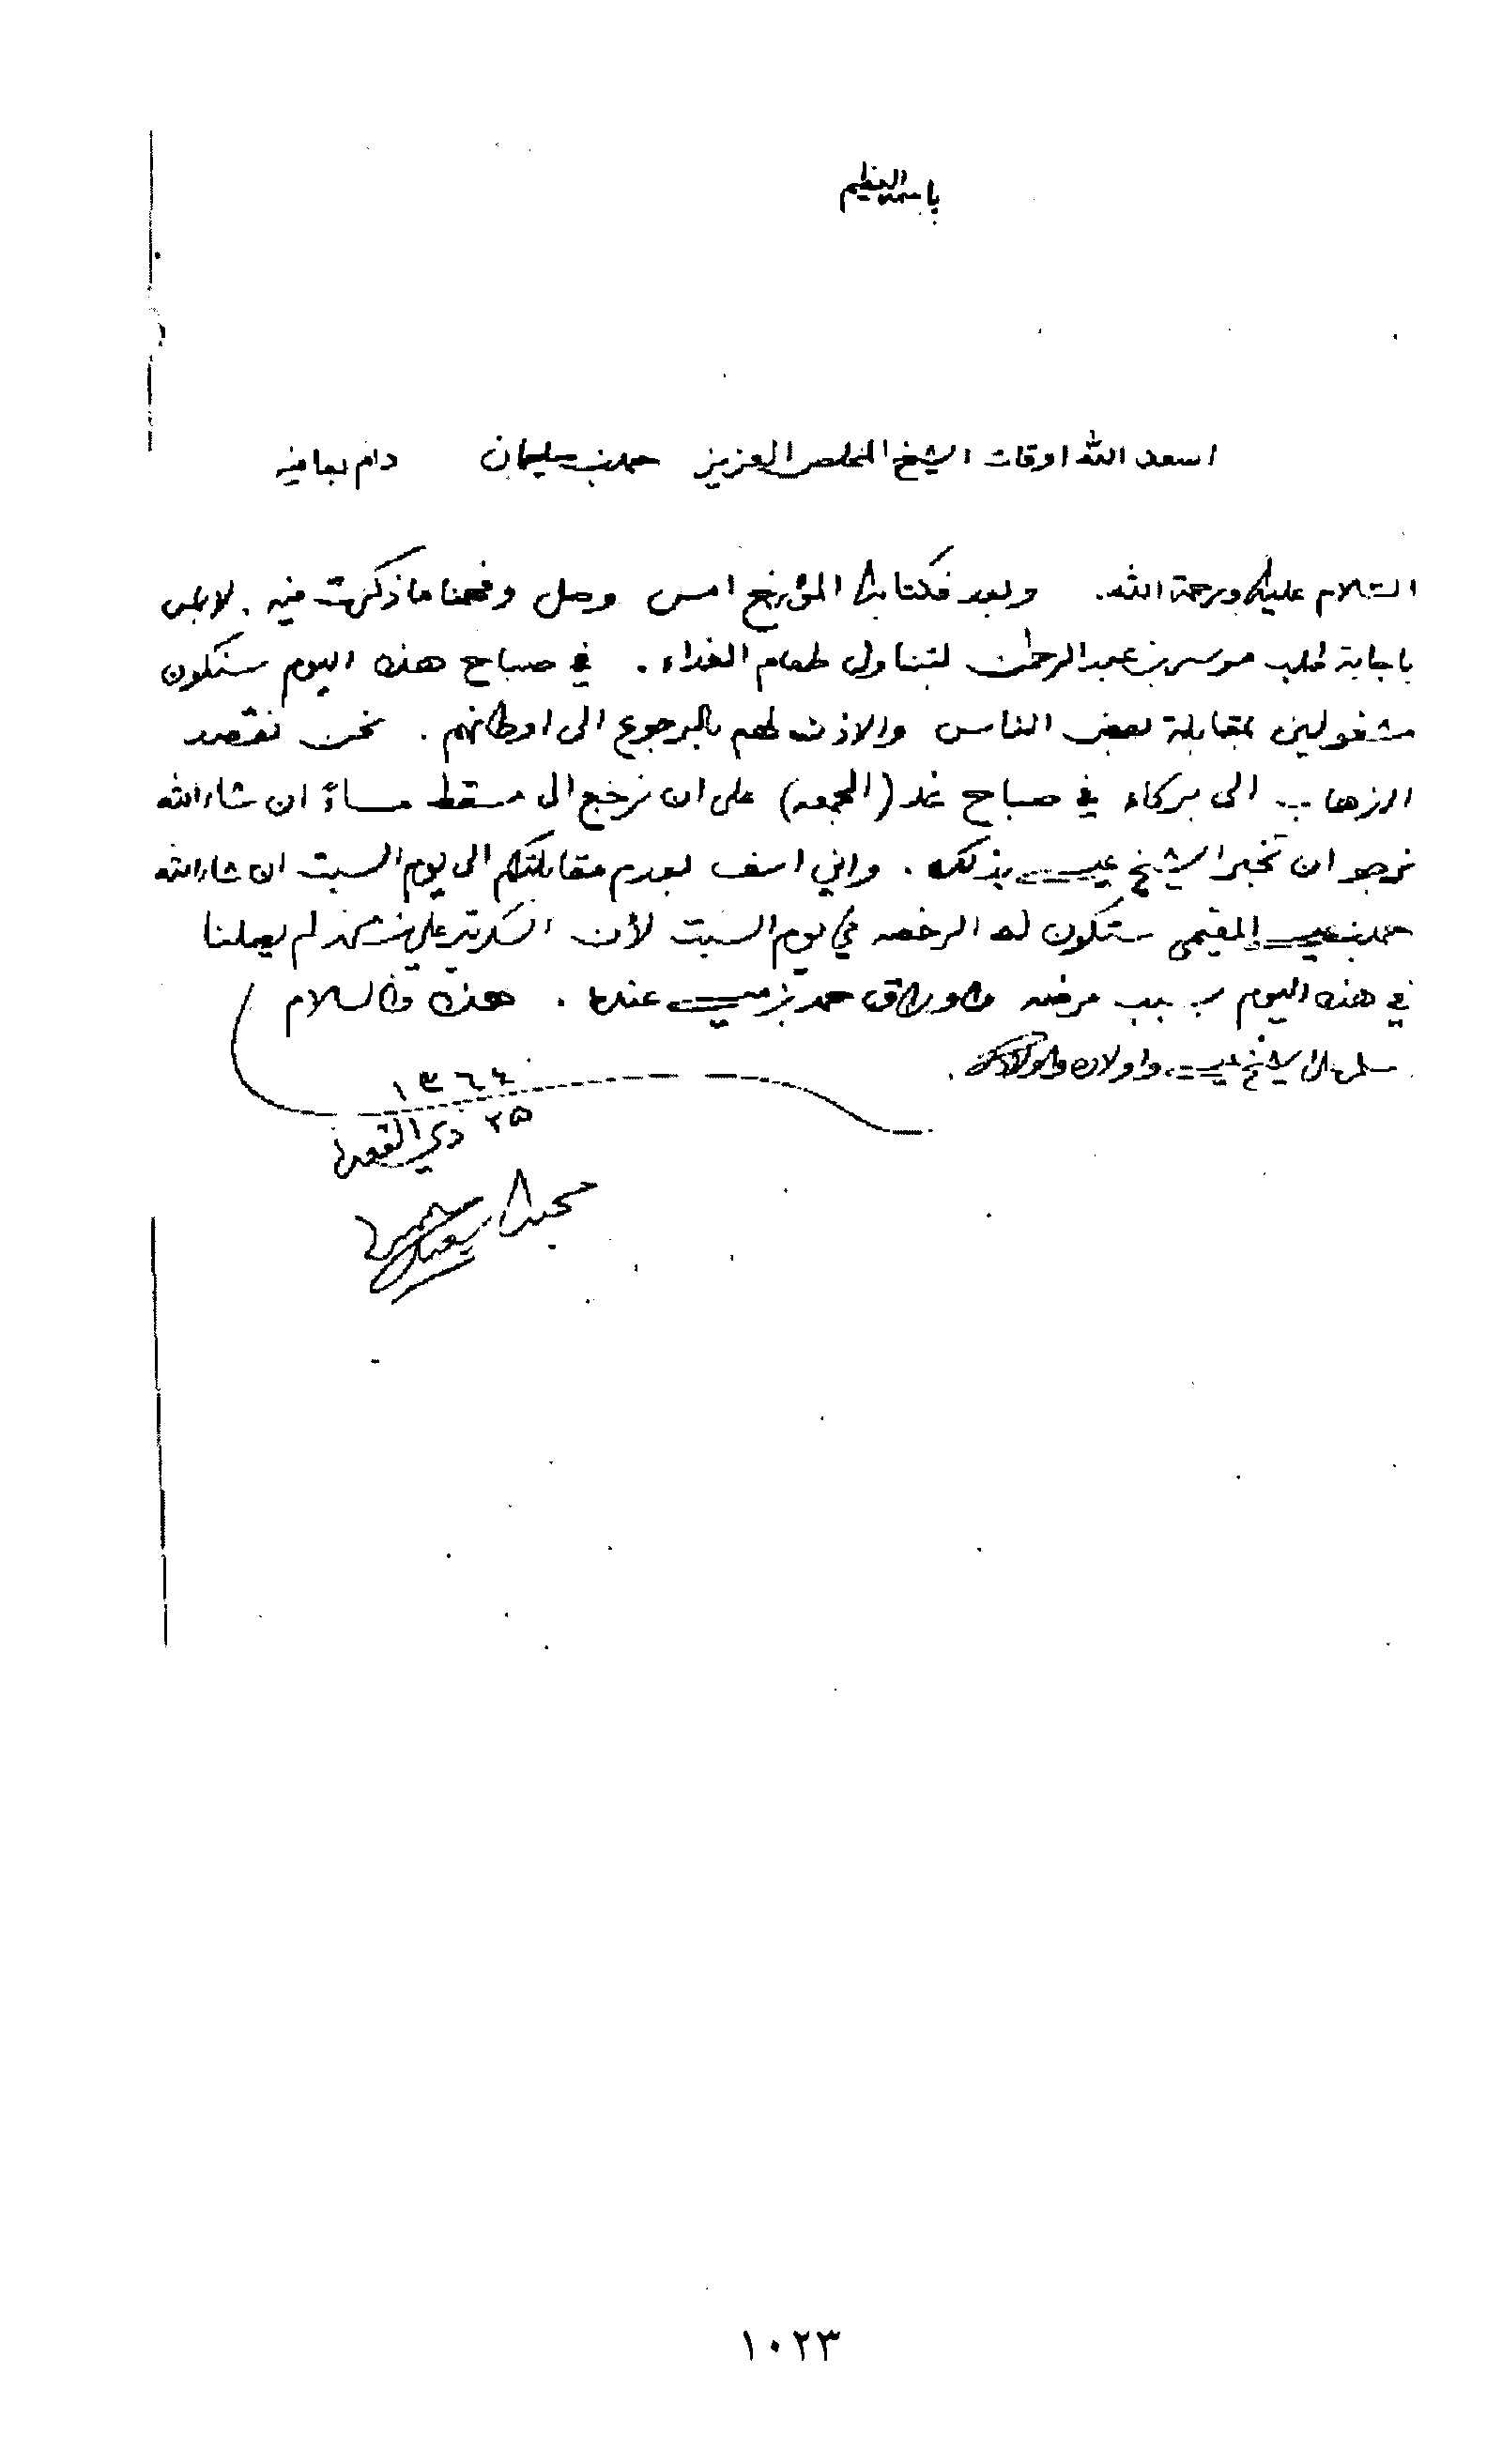 باسمه العظيم
اسعد الله اوقات الشيخ المخلص العزيز حمد بن سليمان دام بعافيه
السلام عليكم ورحمة الله. وبعد فكتابك المؤرخ امس وصل وفهمنا ما ذكرت فيه. لا بأس
باجابة طلب موسى بن عبدالرحمن لتناول طعام الغداء. في صباح هذه اليوم سنكون
مشغولين بمقابلة بعض الناس والاذن لهم بالرجوع الى اوطانهم. نحن نقصد
الذهاب الى بركاء في صباح غد (الجمعه) على ان نرجع الى مسقط مساءً ان شاء الله
نرجو ان تخبر الشيخ عيسى بذلك. واني اسف لعدم مقابلتكم الى يوم السبت ان شاء الله
حمد بن عيسى ستكون له الرخصه في يوم السبت لأن السكرتير علي لم يصلنا
في هذه اليوم بسبب مرضه واوراق حمد بن عيسى عنده. هذه والسلام
سلم على الشيخ عيسى واولاده واولادك.
١٣٦٤
٢٥ ذي القعده
١٠٢٣